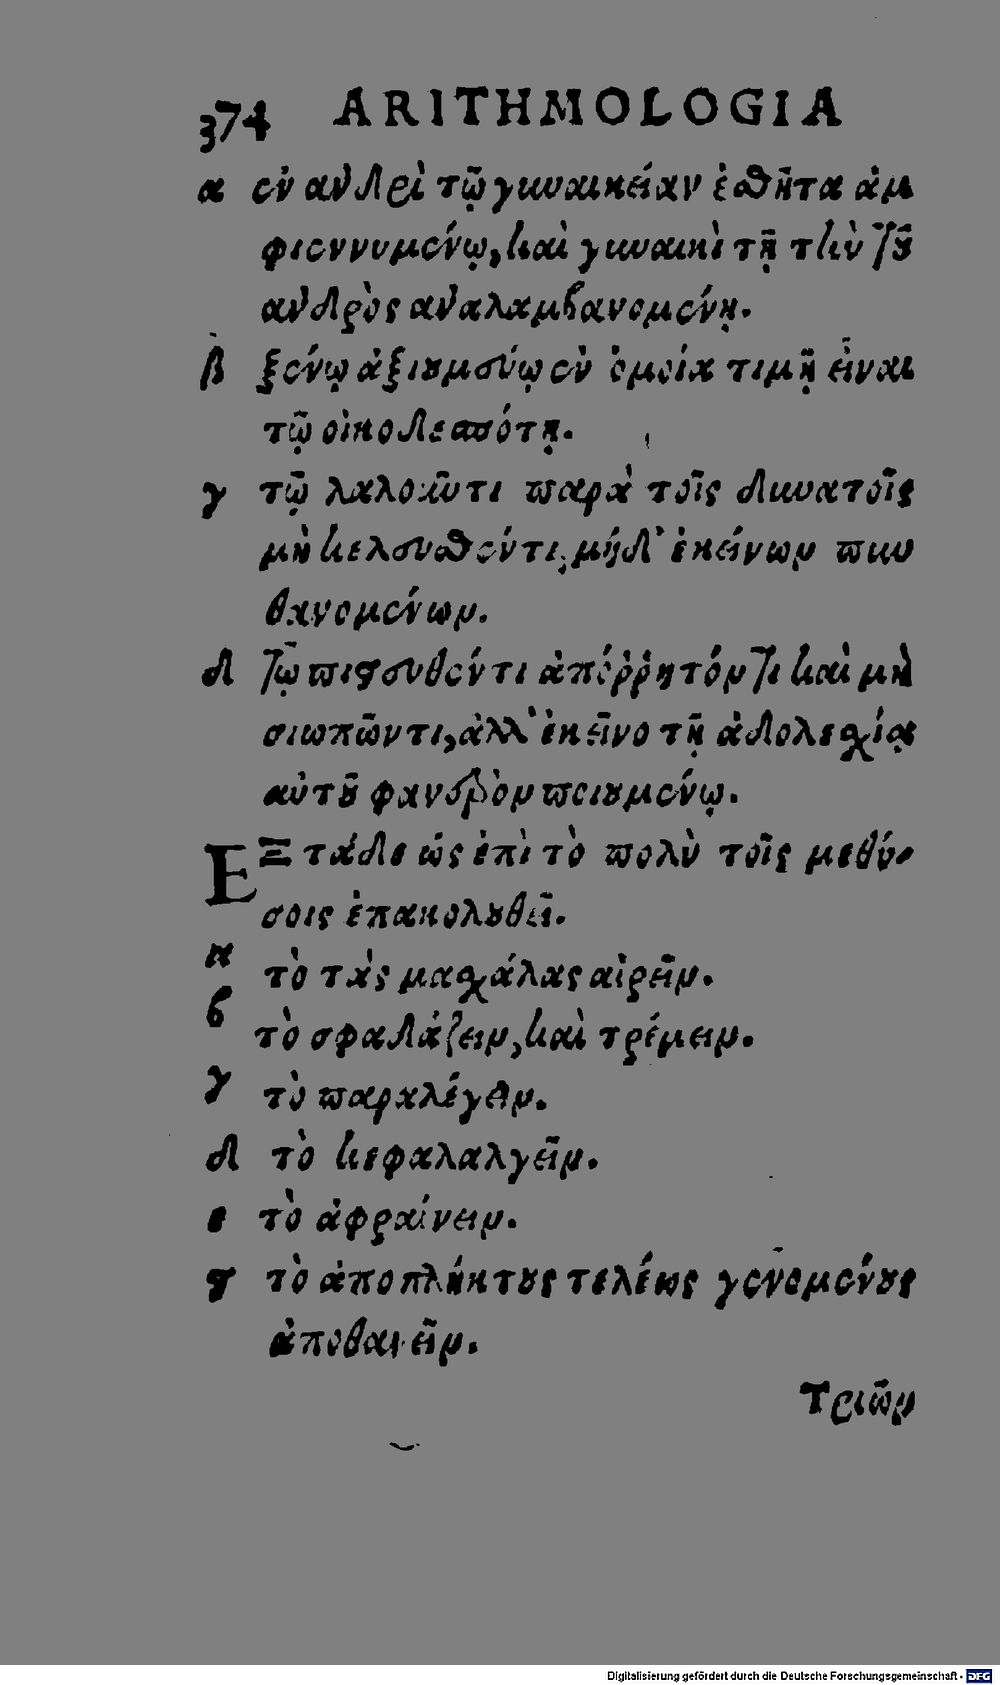 374 ARITHMOLOGIA
α ἐν ἀνδρὶ τῷ γυναικείαν ἐσθῆτα ἀμ
φιεννυμένῳ, καὶ γυναικὶ τῇ τὴν τοῦ
ἀνδρὸς ἀναλαμβανομένῃ.
β ξένῳ ἀξιουμένῳ ἐν ὁμοίᾳ τιμῇ εἶναι
τῷ οἰκοδεσπότῃ.
γ τῷ λαλοῦντι παρὰ τοῖς δυνατοῖς
μὴ κελευσθέντι, μήδ' ἐκείνων πυν
θανομένων.
δ τῷ πιστευθέντι ἀπόῤῥητόν τι καὶ μὴ
σιωπῶντι, ἀλλ' ἐκεῖνο τῇ ἀδολεσχίᾳ
αὐτοῦ φανερὸν ποιουμένῳ.
ΕΞ τάδε ὡς ἐπὶ τὸ πολὺ τοῖς μεθύ-
σοις ἐπακολουθεῖ.
α τὸ τὰς μασχάλας αἱρεῖν.
β τὸ σφαδάζειν, καὶ τρέμειν.
γ τὸ παραλέγειν.
δ τὸ κεφαλαλγεῖν.
ε τὸ ἀφραίνειν.
ς τὸ ἀποπλήκτους τελέως γενομένους
ἀποθανεῖν.
Τριῶν
Digitalisierung gefördert durch die Deutsche Forschungsgemeinschaft - DFG